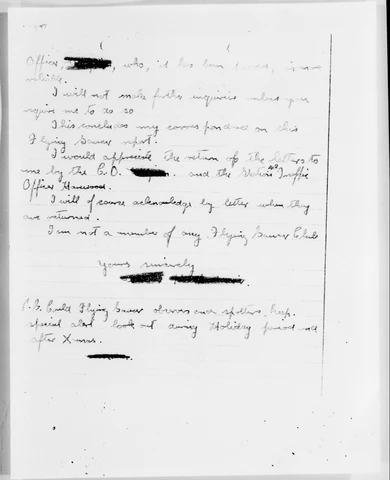 Officer, , who, it has been , is now
.
I will not make further inquiries unless you
require me to do so
This concludes my correspondence on this
Flying Saucer report.
I would appreciate the return of the letters to
me by the C.O. and the Station Traffic
Officer Harwood.
I will of course acknowledge by letter when they
are returned.
I am not a member of any Flying Saucer Club
Yours sincerely
P.S. Could Flying Saucer observers spotters, keep
special alert look out during Holiday period and
after X-mas.